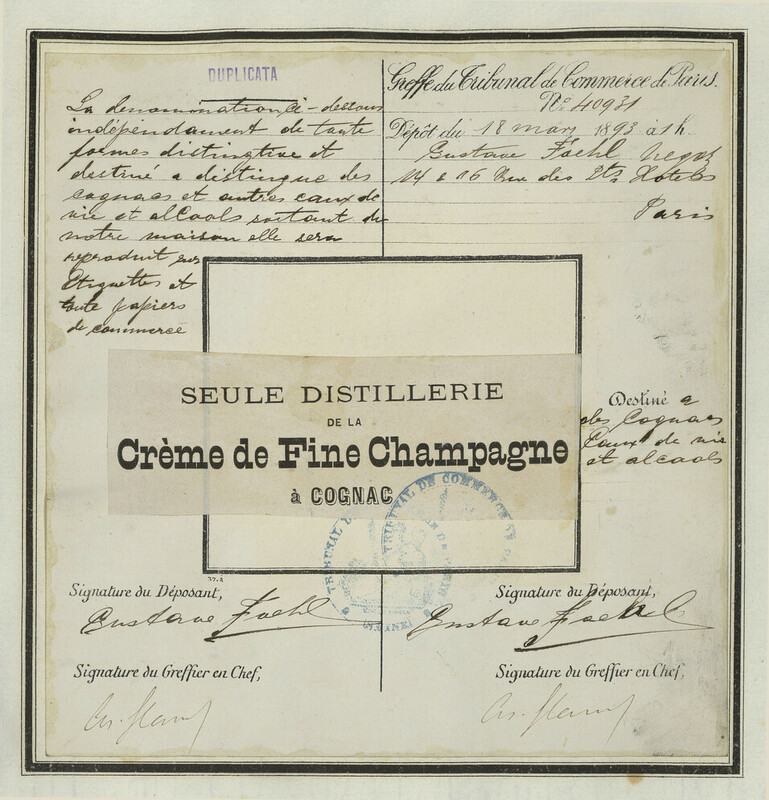 DUPLICATA
La denommination ci-dessous
indépendament de toute
formes distinctive et
destiné a distingue des
cognacs et autres eaux de
vie et alcools sortant de
notre maison elle sera
reproduit sur
Etiquettes et
toute papiers
de commerce
Greffe du Tribunal de Commerce de Paris.
No 40931
Dépôt du 18 mars 1893 à 1 h.
Gustave Foehl Negot
14 & 16 Rue des Pts Hotels
Paris
SEULE DISTILLERIE
DE LA
Crème de Fine Champagne
à COGNAC
Destiné a
des Cognacs
Eaux de vie
et alcools
TRIBUNAL DE COMMERCE
(SEINE)
37.2
Signature du Déposant,
Gustave Foehl
Signature du Greffier en Chef,
Signature du Déposant,
Gustave Foehl
Signature du Greffier en Chef,